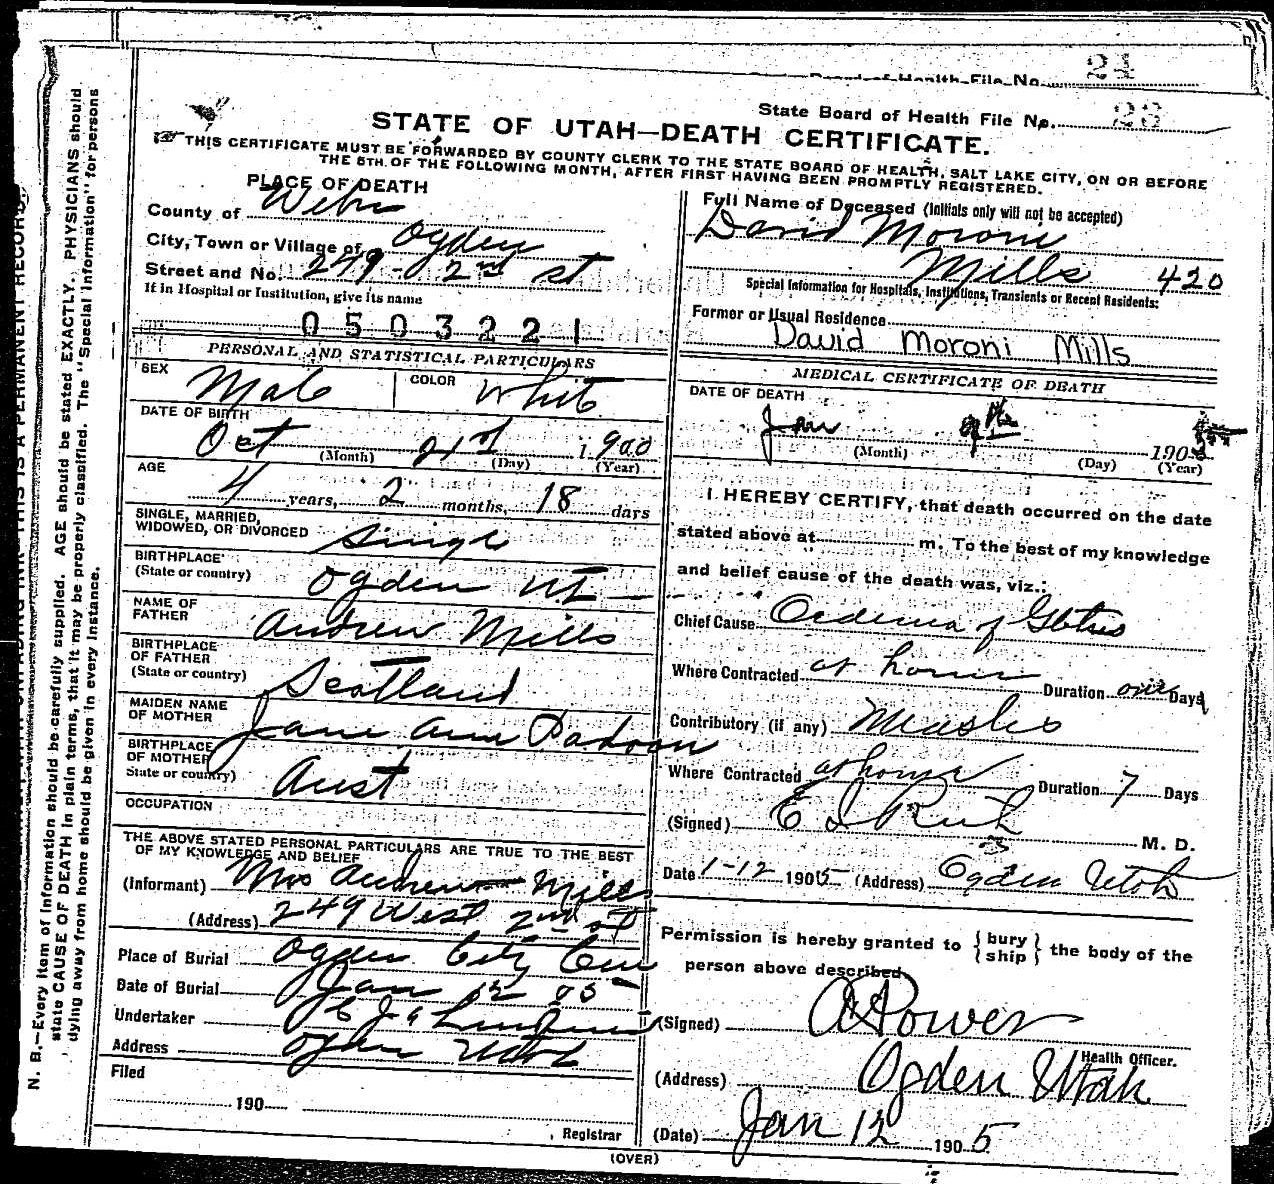 Board of Health File No. 24
State Board of Health File No. 23
STATE OF UTAH—DEATH CERTIFICATE.
THIS CERTIFICATE MUST BE FORWARDED BY COUNTY CLERK TO THE STATE BOARD OF HEALTH, SALT LAKE CITY, ON OR BEFORE
THE 5TH. OF THE FOLLOWING MONTH, AFTER FIRST HAVING BEEN PROMPTLY REGISTERED.
PLACE OF DEATH
County of Weber
City, Town or Village of Ogden
Street and No. 249 - 2nd st
If in Hospital or Institution, give its name
0503221
PERSONAL AND STATISTICAL PARTICULARS
SEX Male COLOR White
DATE OF BIRTH
Oct 21st 1900
(Month) (Day) (Year)
AGE
4 years, 2 months, 18 days
SINGLE, MARRIED,
WIDOWED, OR DIVORCED Single
BIRTHPLACE
(State or country) Ogden Ut
NAME OF
FATHER Andrew Mills
BIRTHPLACE
OF FATHER
(State or country) Scotland
MAIDEN NAME
OF MOTHER Jane Ann
BIRTHPLACE
OF MOTHER
State or country) Aust
OCCUPATION
THE ABOVE STATED PERSONAL PARTICULARS ARE TRUE TO THE BEST
OF MY KNOWLEDGE AND BELIEF
(Informant) Mrs Andrew Mills
(Address) 249 West 2nd st
Place of Burial Ogden City Cem
Date of Burial Jan 12 05
Undertaker
Address Ogden Utah
Filed
190
, Registrar
(OVER)
Full Name of Deceased (Initials only will not be accepted)
David Moroni
Mills 420
Special Information for Hospitals, Institutions, Transients or Recent Residents:
Former or Usual Residence
David Moroni Mills
MEDICAL CERTIFICATE OF DEATH
DATE OF DEATH
Jan 9th 1905
(Month) (Day) (Year)
I HEREBY CERTIFY, that death occurred on the date
stated above at m. To the best of my knowledge
and belief cause of the death was, viz.:
Chief Cause Oedema of
Where Contracted at home Duration one Days
Contributory (if any) Measles
Where Contracted at home Duration 7 Days
(Signed) M. D.
Date 1-12 1905 (Address) Ogden Utah
Permission is hereby granted to { bury ship } the body of the
person above described
(Signed) Power
Health Officer.
(Address) Ogden Utah
(Date) Jan 12 1905
N. B.—Every item of information should be carefully supplied. AGE should be stated EXACTLY. PHYSICIANS should
state CAUSE OF DEATH in plain terms, that it may be properly classified. The "Special Information" for persons
dying away from home should be given in every instance.
THIS IS A PERMANENT RECORD.